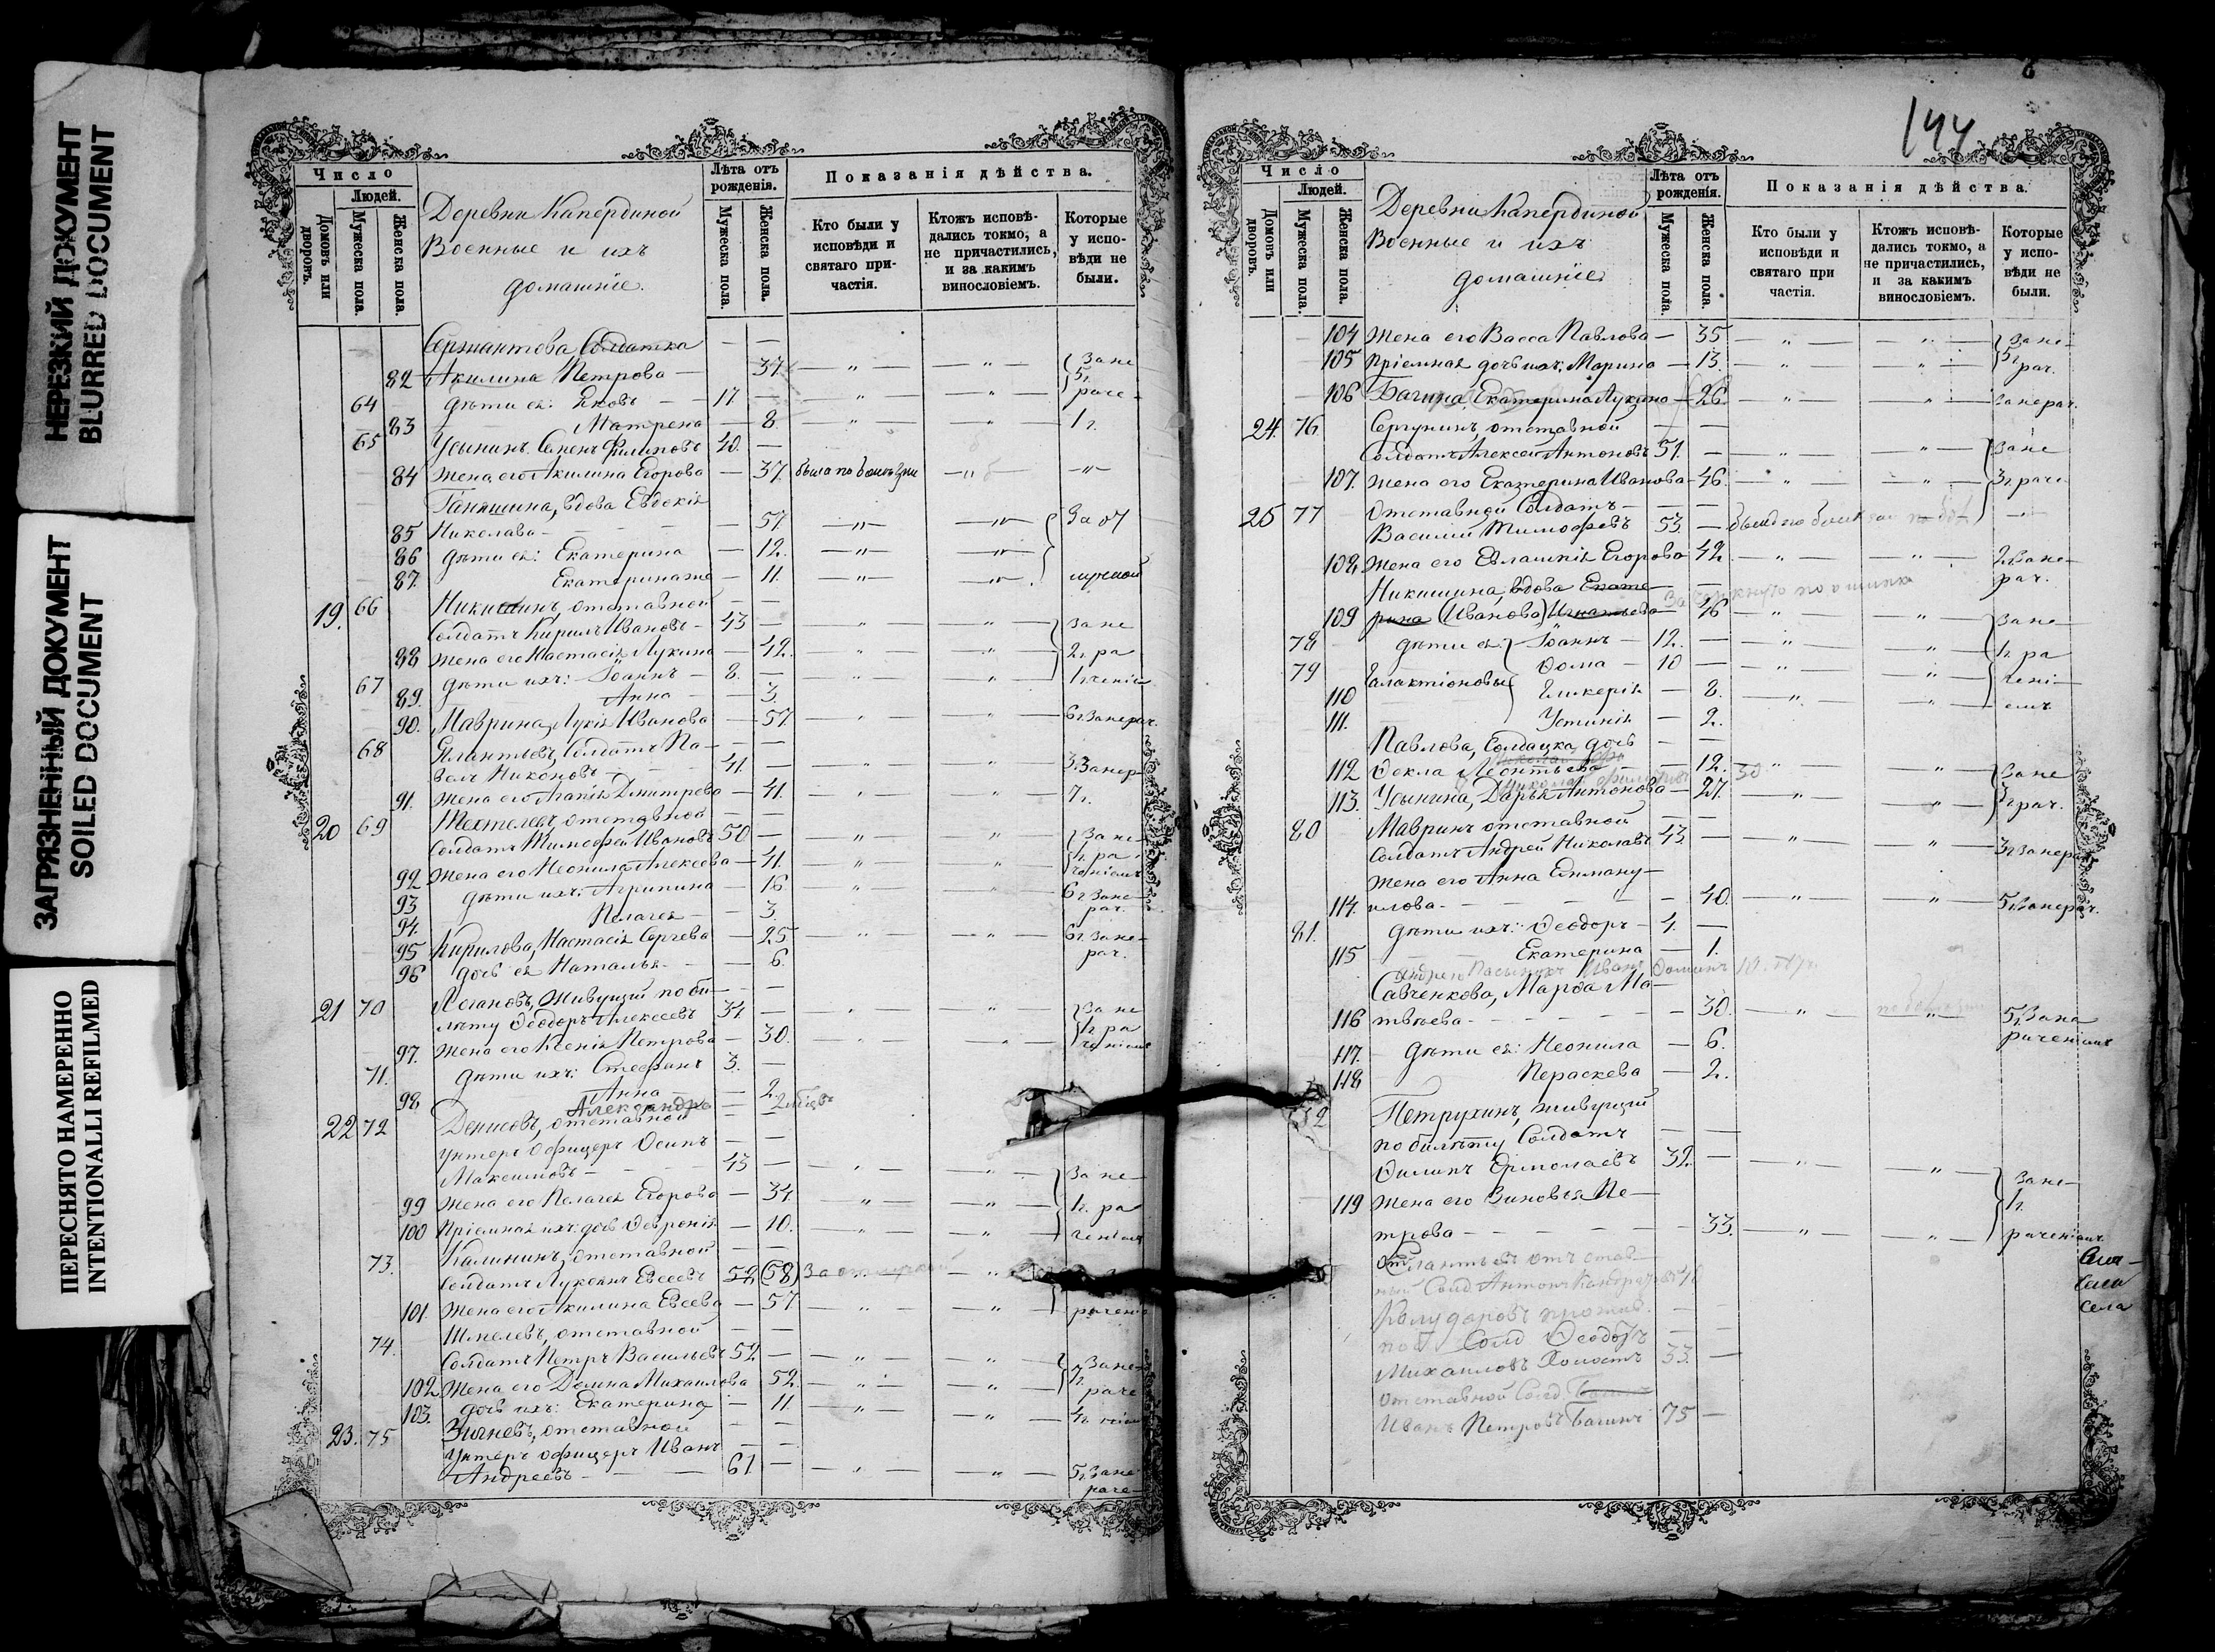 НЕРЕЗКИЙ ДОКУМЕНТ
BLURRED DOCUMENT
ЗАГРЯЗНЕННЫЙ ДОКУМЕНТ
SOILED DOCUMENT
ПЕРЕСНЯТО НАМЕРЕННО
INTENTIONALLI REFILMED
Число
Людей.
Домовъ или дворовъ.
Мужеска пола.
Женска пола.
Деревни Капердиной
Военные и ихъ
домашніе.
Лѣта отъ рожденія.
Мужеска пола.
Женска пола.
Показанія дѣйства.
Кто были у исповѣди и святаго при-частія.
Ктожъ исповѣ-дались токмо, а не причастились, и за какимъ винословіемъ.
Которые у испо-вѣди не были.
Сержантова Солдатка
82 Акилина Петрова — 37
64 дѣти ея: Яковъ — 17
83 Матрена — 8. 1 г.
65 Усынинъ Семенъ Филиповъ 40.
84 Жена его Акилина Егорова — 37. была по болѣзни
Ганяшина, вдова Евдокія
85 Николава — 57. За от
86 дѣти ея: Екатерина — 12.
87. Екатерина же — 11. лучкой
19. 66 Никишинъ, отставной
Солдатъ Кирилъ Ивановъ — 43 — За не
88 Жена его Настасія Лукина — 42. 2 г. ра
67 дѣти ихъ: Іоаннъ — 8.
89. Анна — 3.
90. Маврина, Лукія Иванова — 57 6 г. За нерач.
68 Елантьевъ, Солдатъ Па-
велъ Никоновъ — 41. 3. За нер
91. Жена его Агапія Дмитрева — 41. 7 г.
20 69 отставной
Солдатъ Тимофей Ивановъ 50 — За не
92 Жена его Неонила Алексеева — 41.
93 дѣти ихъ: Агрипина — 16 6 г. За не-
рач.
94. Пелагея — 3.
95 Кирилова, Настасія Сергева — 25 6 г. За не-
рач.
96 дочь ея Наталья — 6.
21 70 живущій по би-
лѣту Ѳеодоръ Алексеевъ 34. — За не
97. Жена его Ксенія Петрова — 30.
71. дѣти ихъ: Стефанъ 3. —
98 Анна — 2.
Александръ
22 72 Денисовъ, отставной
унтеръ офицеръ Осипъ
Максимовъ — 43 — За не-
99 Жена его Пелагея Егорова — 34. ра
100 Пріемная ихъ дочь Ѳевронія — 10.
73. Калининъ, отставной
Солдатъ Лукьянъ Евсеевъ 52 (58) За отлучкой
101. Жена его Акилина Евсева — 57
74. Шмелевъ, отставной
Солдатъ Петръ Васильевъ 52 — За не-
102 Жена его Домна Михаилова 52. раче
103. дочь ихъ: Екатерина — 11
23. 75 отставной
Унтеръ офицеръ Иванъ
Андреевъ — 61 — 5 г. За не
раче
144
Число
Людей.
Домовъ или дворовъ.
Мужеска пола.
Женска пола.
Деревни Капердиной
Военные и ихъ
домашніе
Лѣта отъ рожденія.
Мужеска пола.
Женска пола.
Показанія дѣйства.
Кто были у исповѣди и святаго при частія.
Ктожъ исповѣ-дались токмо, а не причастились, и за какимъ винословіемъ.
Которые у испо-вѣди не были.
104 Жена его Васса Павлова — 35 За не-
105 Пріемная дочь ихъ: Марина — 13. 5 г. рач.
106 Багина, Екатерина Лукина — 26. За нерач.
24. 76. Сергунинъ, отставной
Солдатъ Алексей Антоновъ 51. — За не
107. Жена его Екатерина Иванова — 46. 3 г. раче
25 77 Отставной Солдатъ —
Василий Тимофеевъ 53. —
108. Жена его Евлампія Егорова — 42 За не-
рач.
Никишина, вдова Екате-
109 рина (Иванова) Игнатьева — 46 За не
78 дѣти ея: Іоаннъ — 12. — ра
79 Ѳома — 10 — чені
110 Галактіоновы Гликерія — 8. емъ
111. Устинія — 2.
Павлова, Солдацка дочь
112 Ѳекла Леонтьева — 12. За не
113. Усынина, Дарья Антонова — 27. рач.
80 Мавринъ отставной
Солдатъ Андрей Николавъ 43. — 3 г. За нерач
Жена его Анна Емману-
114. илова — 40. 5 г. За нерач.
81. дѣти ихъ: Ѳеодоръ — 4. —
115 Екатерина — 1.
Савченкова, Марѳа Ма-
116 твѣева — 30. 5 г. За не
раченіемъ
117. дѣти ея: Неонила — 6.
118 Пераскева — 2.
Петрухинъ, живущій
по билѣту Солдатъ
Филипъ Ермолаевъ 32. — За не-
119 Жена его Зиновья Пе-
трова — 33. раченіемъ
Елантьевъ отъ став-
ный Солд. Антонъ
Солд Ѳеодоръ
Михаиловъ Холостъ 33. —
отставной Солд.
Иванъ Петровъ Багинъ 75 —
Села